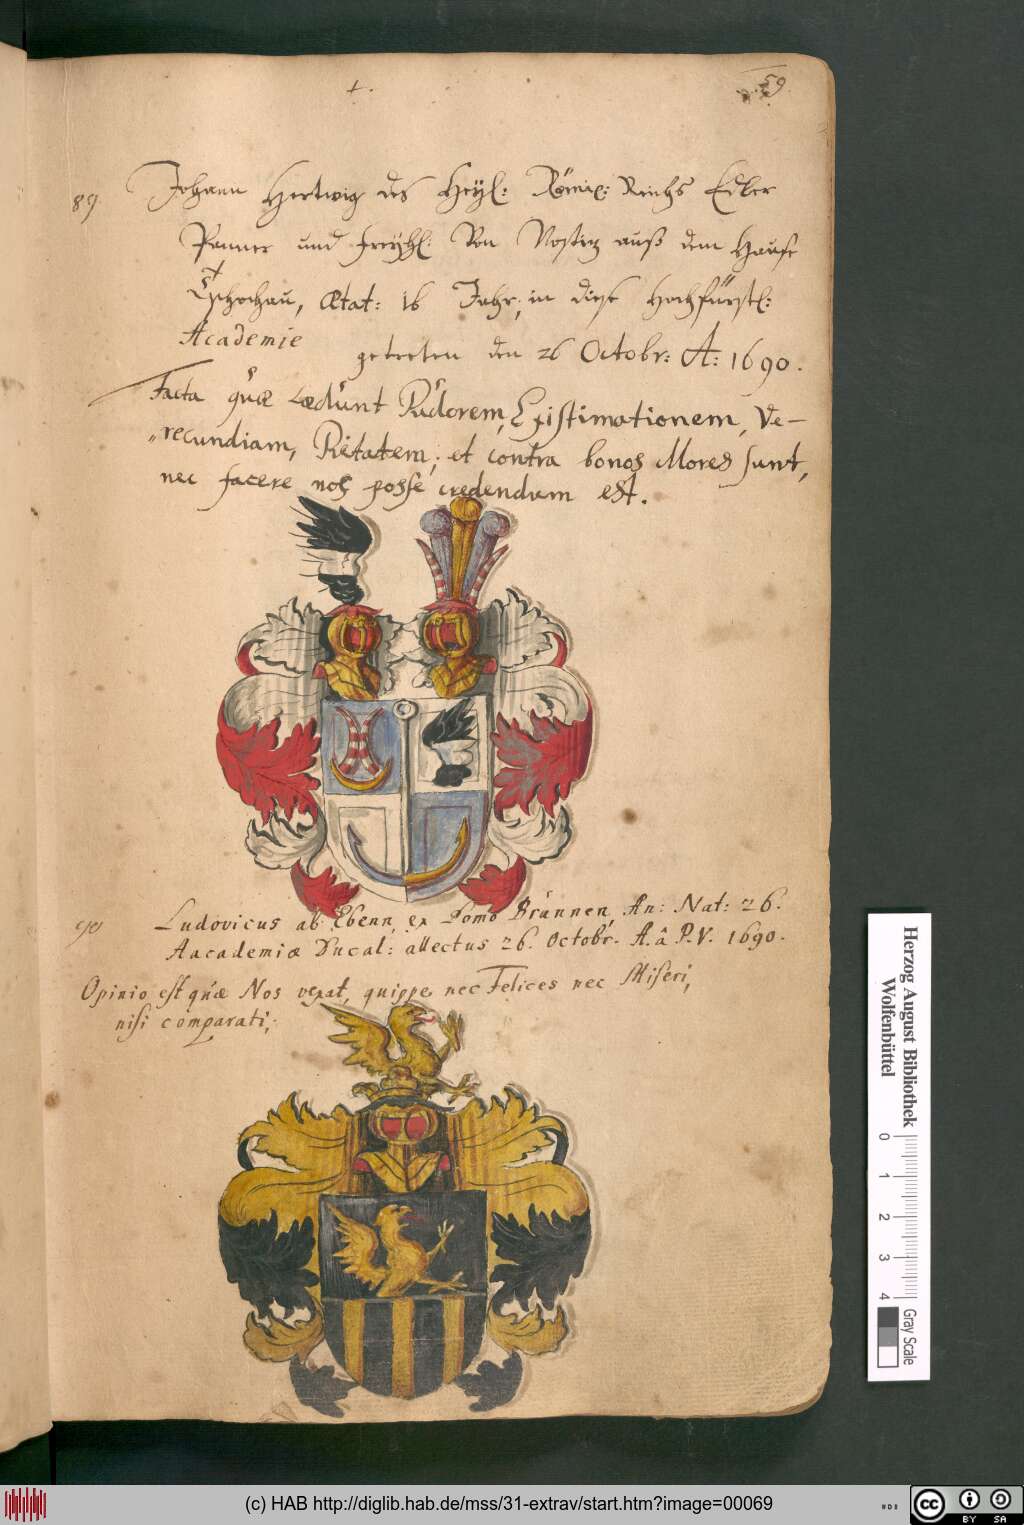 59.
89. Johann Hertwig des Heyl: Römis: Reichs Edler
Panner und freyh: Von Nostiz auß dem Hause
Tschochau, Ætat: 16 Jahr, in diese Hochfürstl:
Academie
getreten den 26 Octobr: A: 1690.
Facta quæ lædunt Pudorem, Existimationem, Ve-
recundiam, Pietatem, et contra bonos Mores sunt,
nec facere nos posse credendum est.
90 Ludovicus ab Ebenn, ex Domo Brunnen, An: Nat: 26.
Aacademiæ Ducal: allectus 26. Octobr. A. â P.V. 1690.
Opinio est quæ Nos vexat, quippe nec Felices nec Miseri,
nisi comparati;
Herzog August Bibliothek
Wolfenbüttel
0 1 2 3 4
Gray Scale
(c) HAB http://diglib.hab.de/mss/31-extrav/start.htm?image=00069
cc BY SA